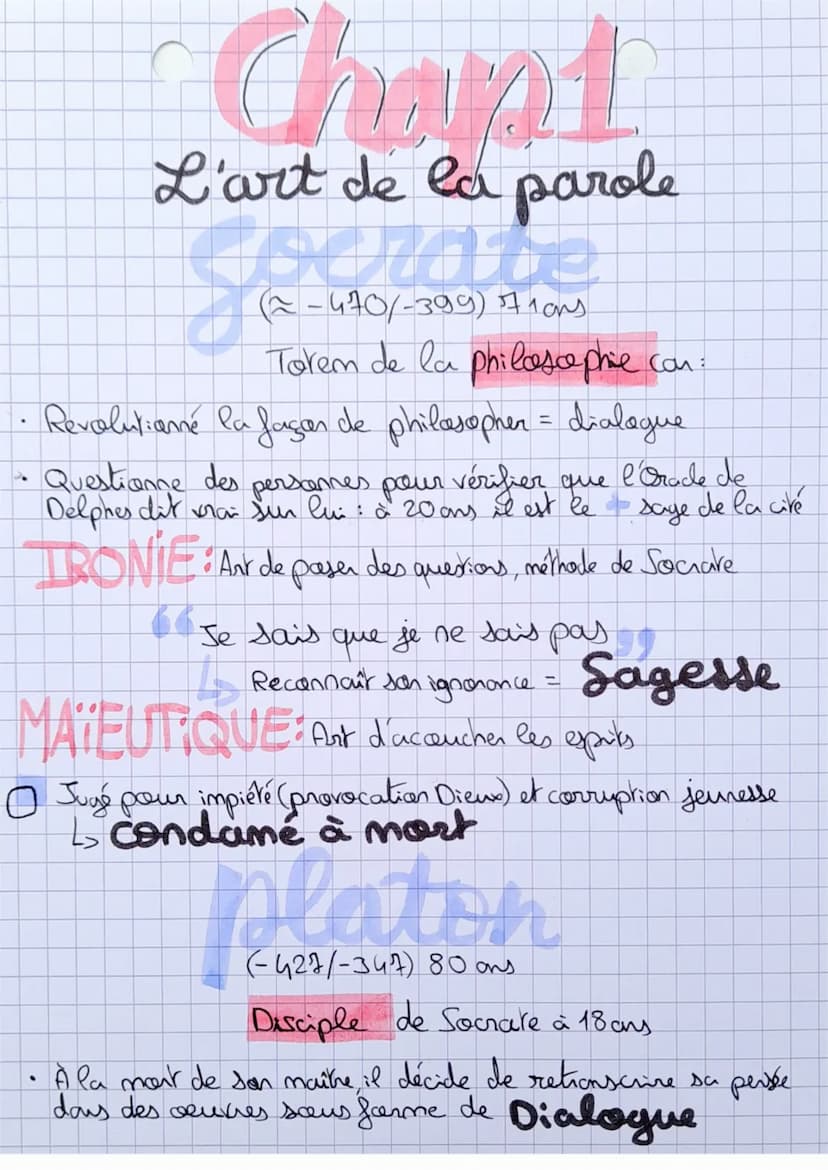 Chap 1
L'art de la parole
Socrate
(≈ -470/-399) 71 ans
Totem de la philosophie car :
· Revolutionné la façon de philosopher = dialogue
· Questionne des personnes pour vérifier que l'Oracle de
Delphes dit vrai sur lui : à 20 ans il est le + sage de la cité
IRONIE : Art de poser des questions, méthode de Socrate
“ Je sais que je ne sais pas ”
↳ Reconnaît son ignorance = Sagesse
MAÏEUTIQUE : Art d'accoucher les esprits
Jugé pour impiété (provocation Dieux) et corruption jeunesse
↳ condamé à mort
platon
(-427/-347) 80 ans
Disciple de Socrate à 18 ans
· À la mort de son maître, il décide de retranscrire sa pensée
dans des oeuvres sous forme de Dialogue